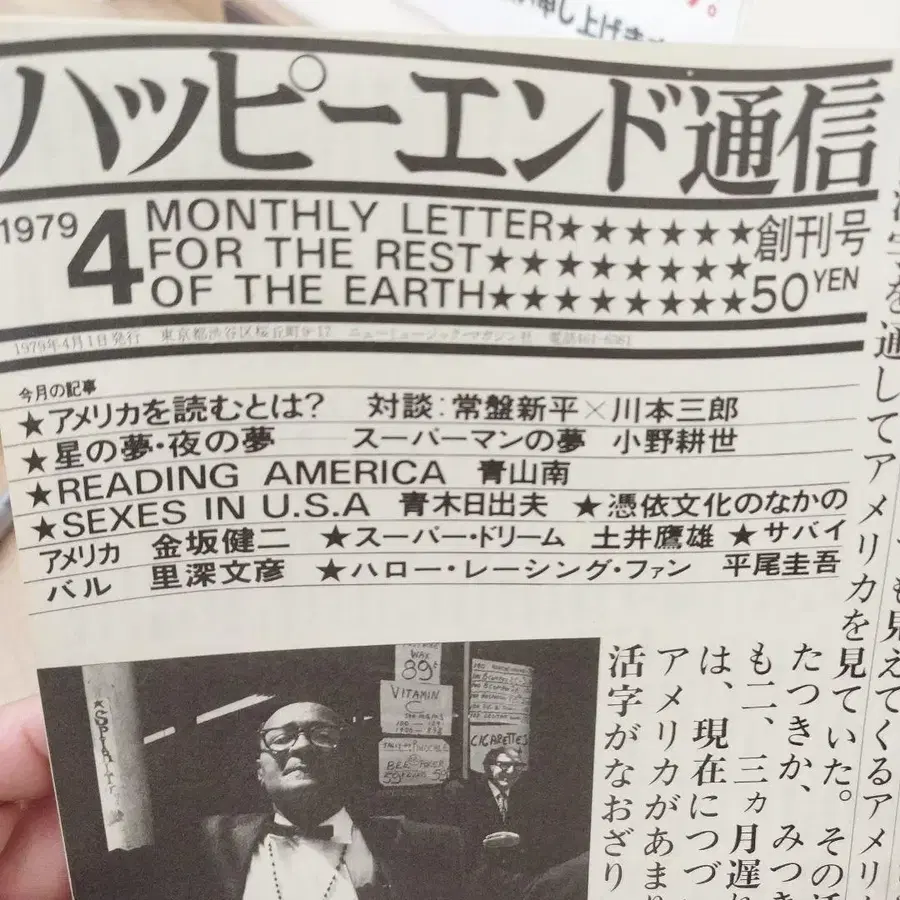 申し上げま
ハッピーエンド通信
1979
4
MONTHLY LETTER★★★★★★
FOR THE REST★★★★★★★★
OF THE EARTH★★★★★★★★
創刊号
50YEN
1979年4月1日発行 東京都渋谷区桜丘町9-17 ニューミュージック・マガジン社 電話461-6381
今月の記事
★アメリカを読むとは? 対談:常盤新平×川本三郎
★星の夢・夜の夢 スーパーマンの夢 小野耕世
★READING AMERICA 青山南
★SEXES IN U.S.A 青木日出夫 ★憑依文化のなかの
アメリカ 金坂健二 ★スーパー・ドリーム 土井鷹雄 ★サバイ
バル 里深文彦 ★ハロー・レーシング・ファン 平尾圭吾
を通してアメリカを見ていた。その
も見えてくるアメリ
たつきか、みつき
も二、三ヵ月遅
は、現在につづ
アメリカがあま
活字がなおざり
WAX
89¢
VITAMIN
C
CIGARETTES